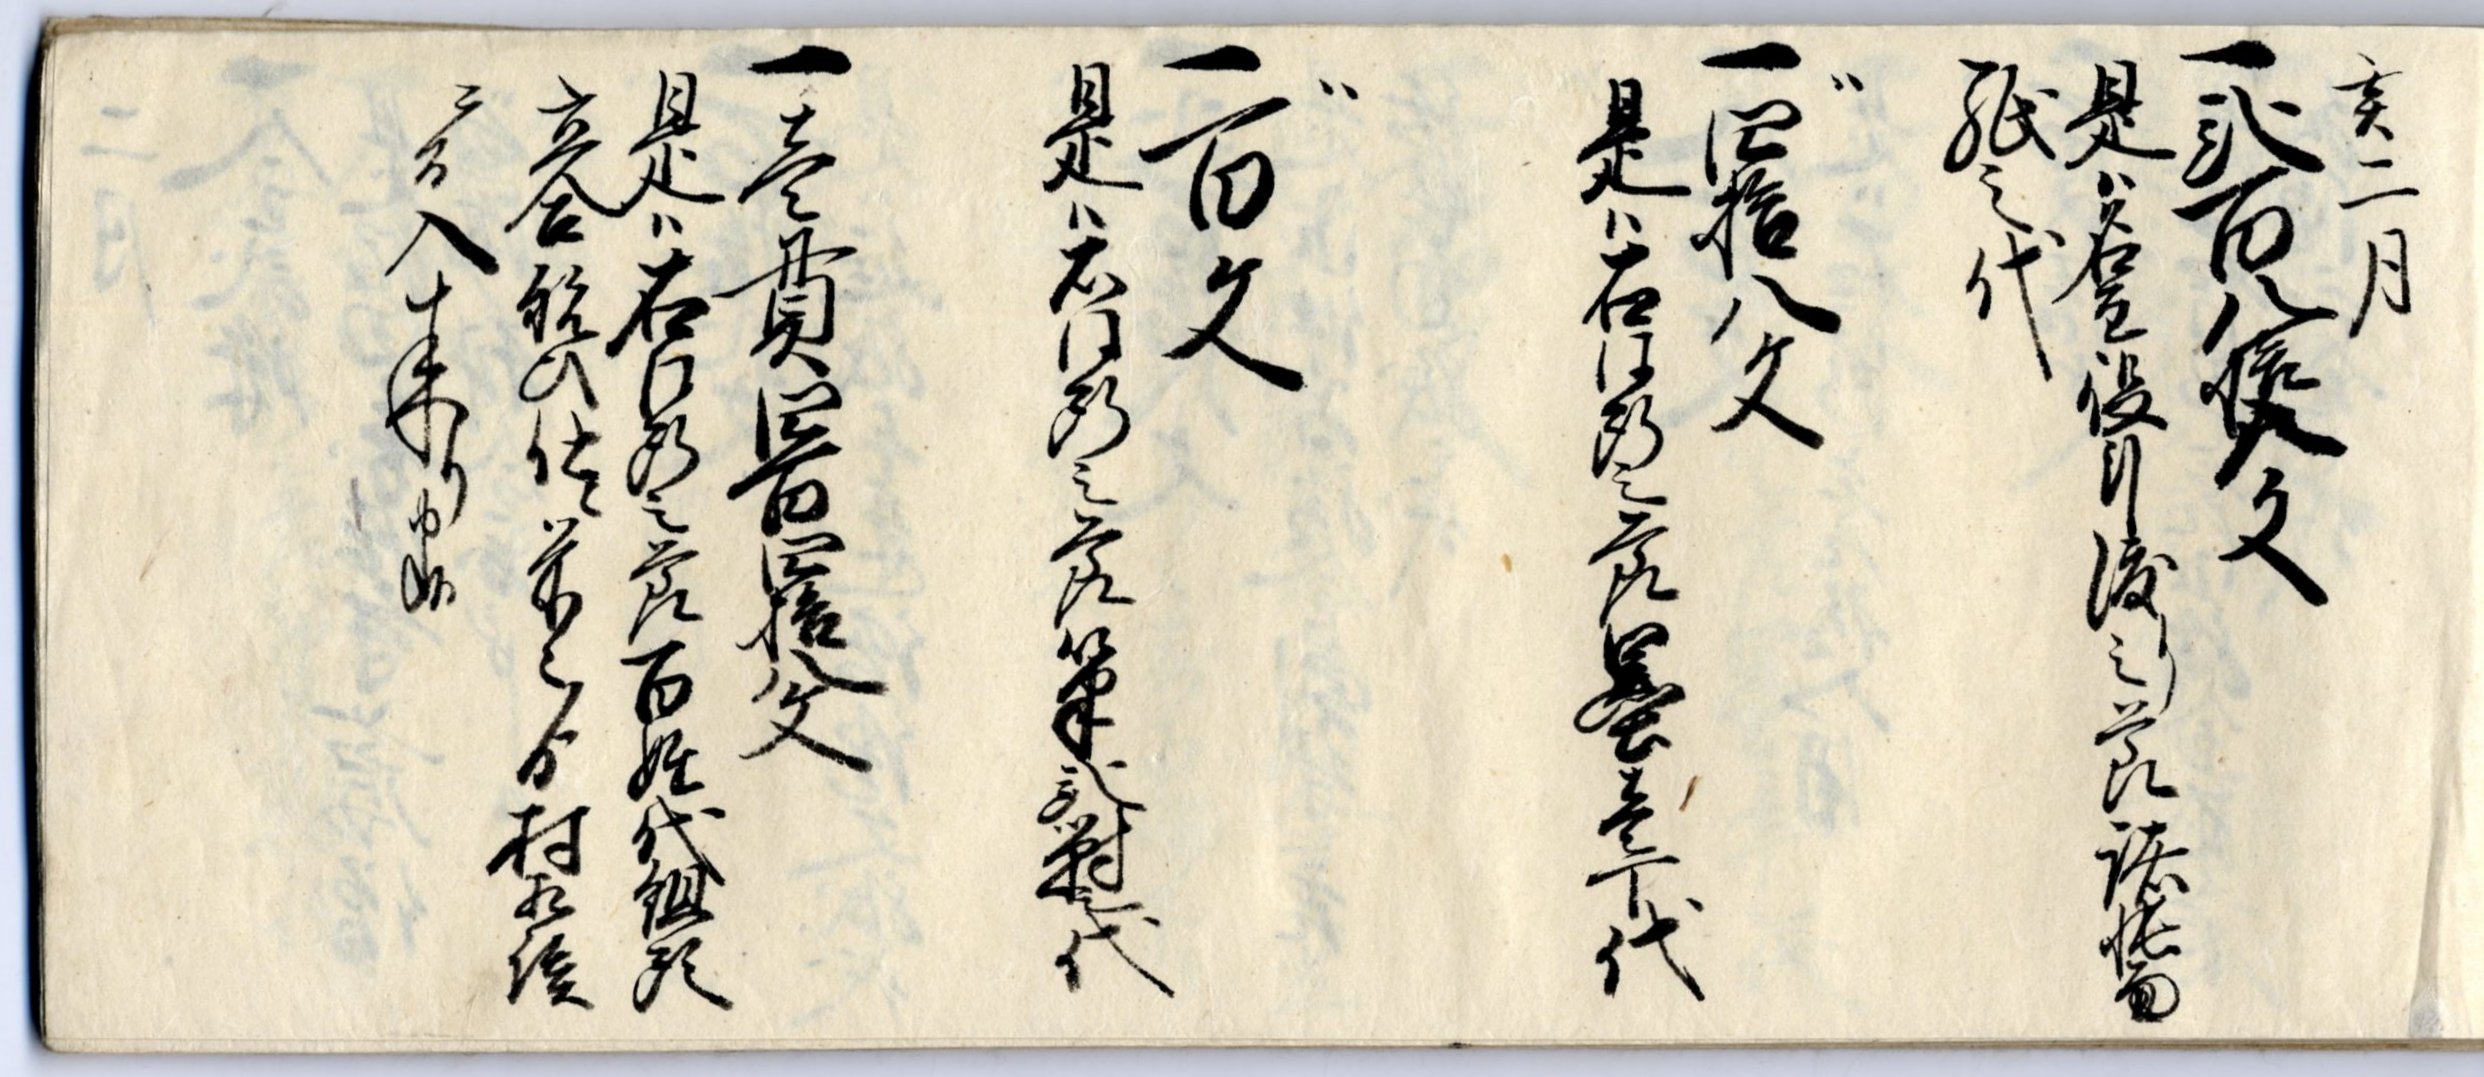 亥二月
一弐百八拾八文
是ハ名主役引渡り之節諸帳面
紙之代
〃
一四拾八文
是ハ右同断之節墨壱丁代
〃
一百文
是ハ右同断之節筆弐対之代
一壱貫四百四拾八文
是ハ右同断之節百姓代組頭
立合 仕 之分村
入
二月